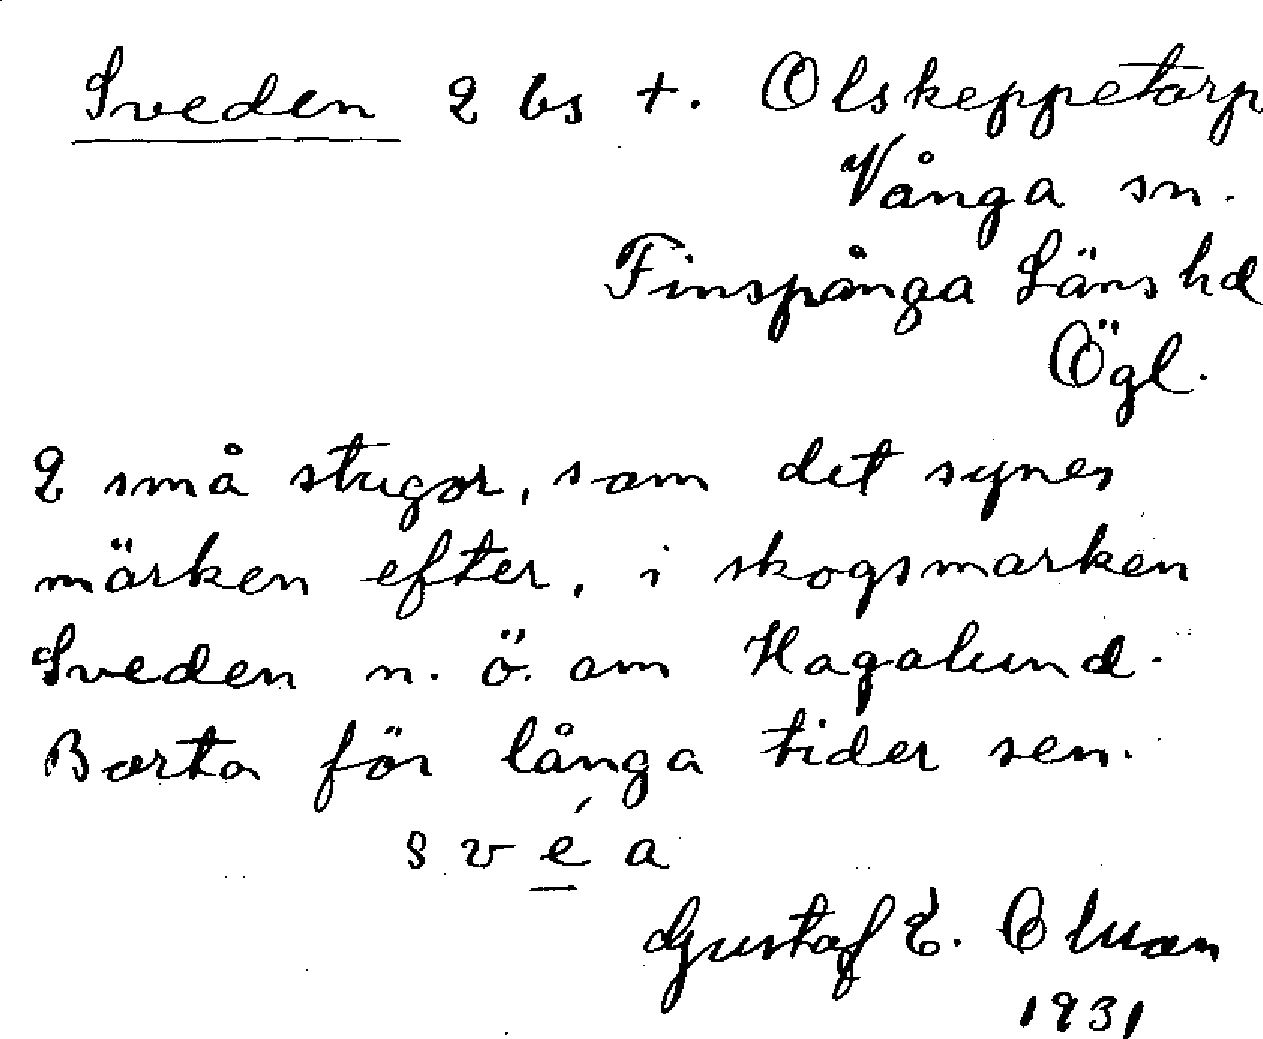 Sveden 2 bs +. Olskeppetorp
Vånga sn.
Finspånga Länshd
Ögl.
2 små stugor, som det synes
märken efter, i skogsmarken
Sveden n. ö. om Hagalund.
Borta för långa tider sen.
s v é a
Gustaf E. Olson
1931